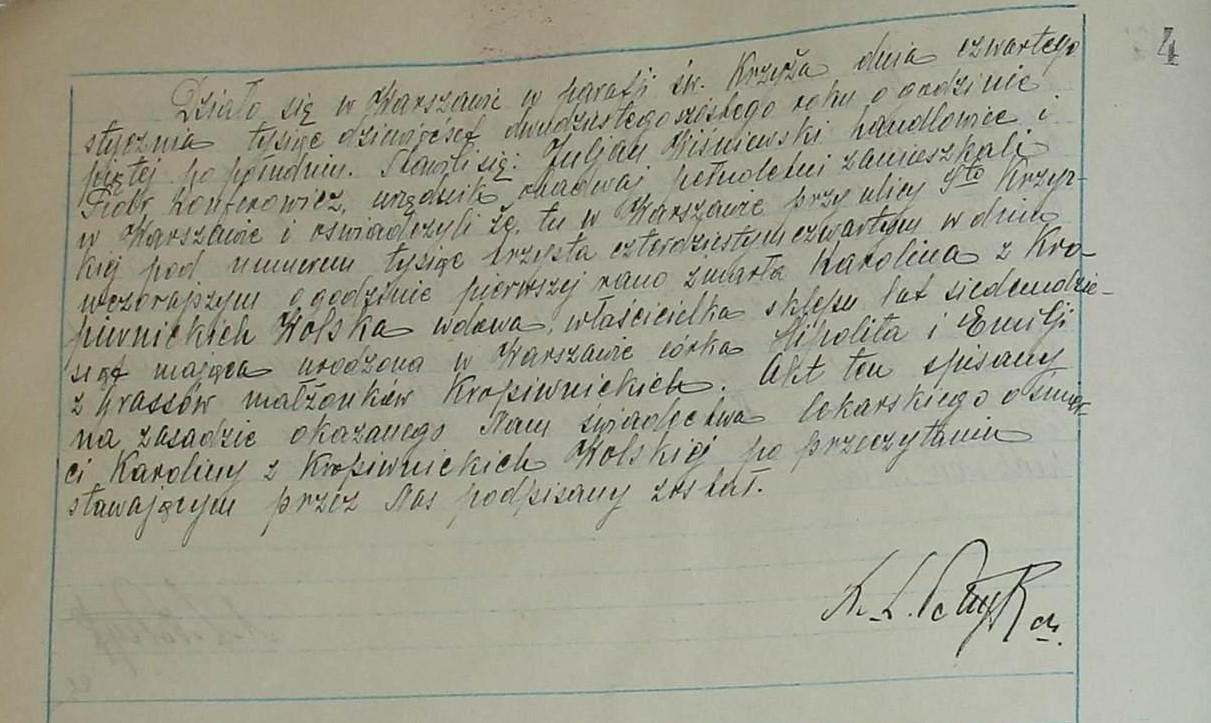 4
Działo się w Warszawie w parafji św. Krzyża dnia czwartego
stycznia tysiąc dziewięćset dwudziestego szóstego roku o godzinie
piątej po południu. Stawili się: Juljan Wiśniewski handlowiec i
Piotr urzędnik obadwaj pełnoletni zamieszkali
w Warszawie i oświadczyli że, tu w Warszawie przy ulicy Sto Krzyz-
kiej pod numerem tysiąc trzysta czterdziestym czwartym w dniu
wczorajszym o godzinie pierwszej rano zmarła Karolina z Kro-
piwnickich Wolska wdowa, właścicielka sklepu lat siedemdzie-
siąt mająca urodzona w Warszawie córka Hipolita i Emilji
z małżonków Kropiwnickich. Akt ten spisany
na zasadzie okazanego Nam świadectwa lekarskiego o śmier-
ci Karoliny z Kropiwnickich Wolskiej po przeczytaniu
stawającym przez Nas podpisany został.